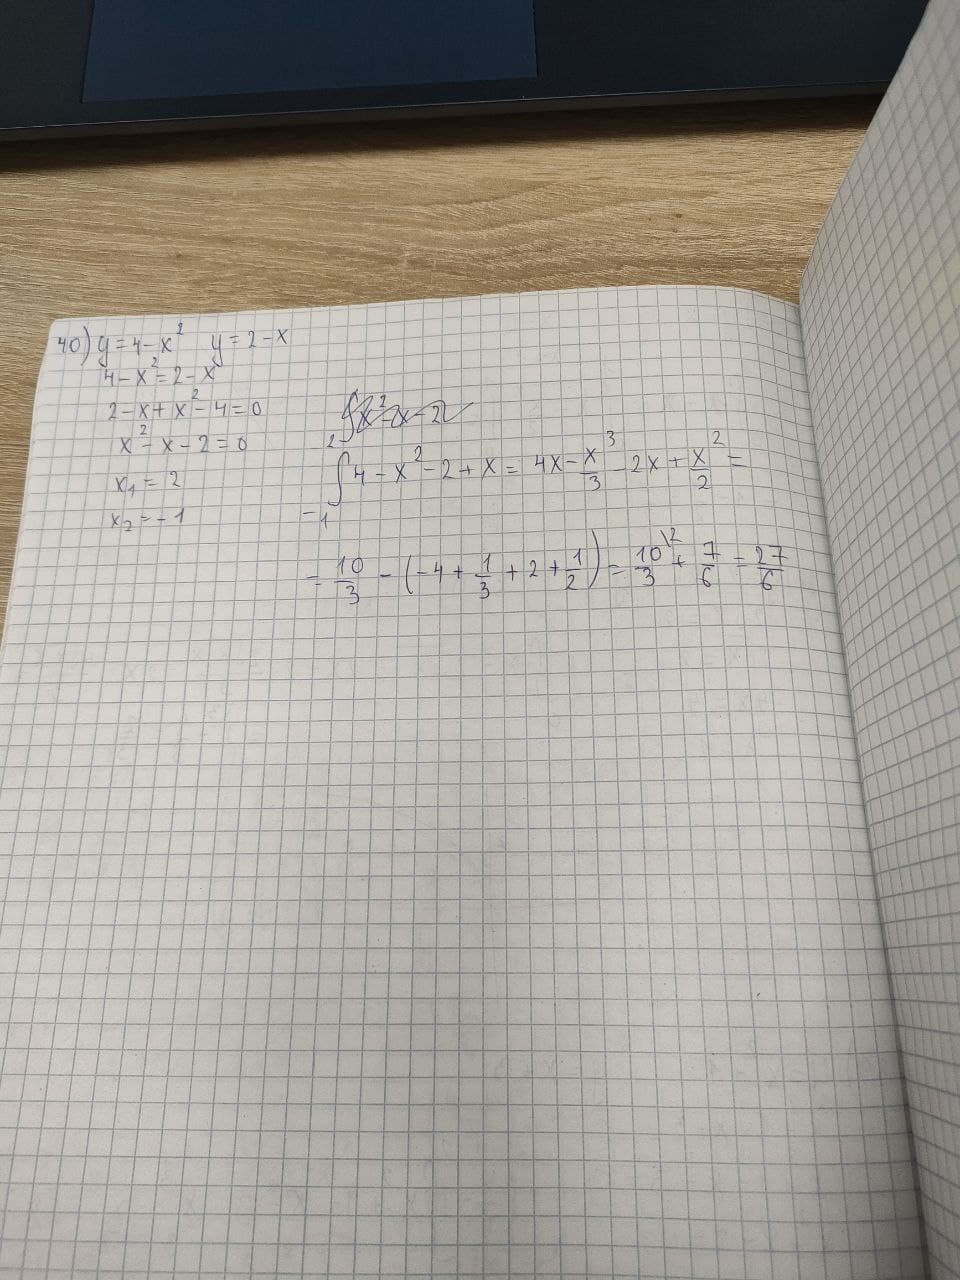 40) y = 4 - x² y = 2 - x
4 - x² = 2 - x
2 - x + x² - 4 = 0
x² - x - 2 = 0
x₁ = 2
x₂ = -1
∫x² - x - 2
∫₋₁² 4 - x² - 2 + x = 4x - x³/3 - 2x + x²/2 =
= 10/3 - (-4 + 1/3 + 2 + 1/2) = 10\2/3 + 7/6 = 27/6